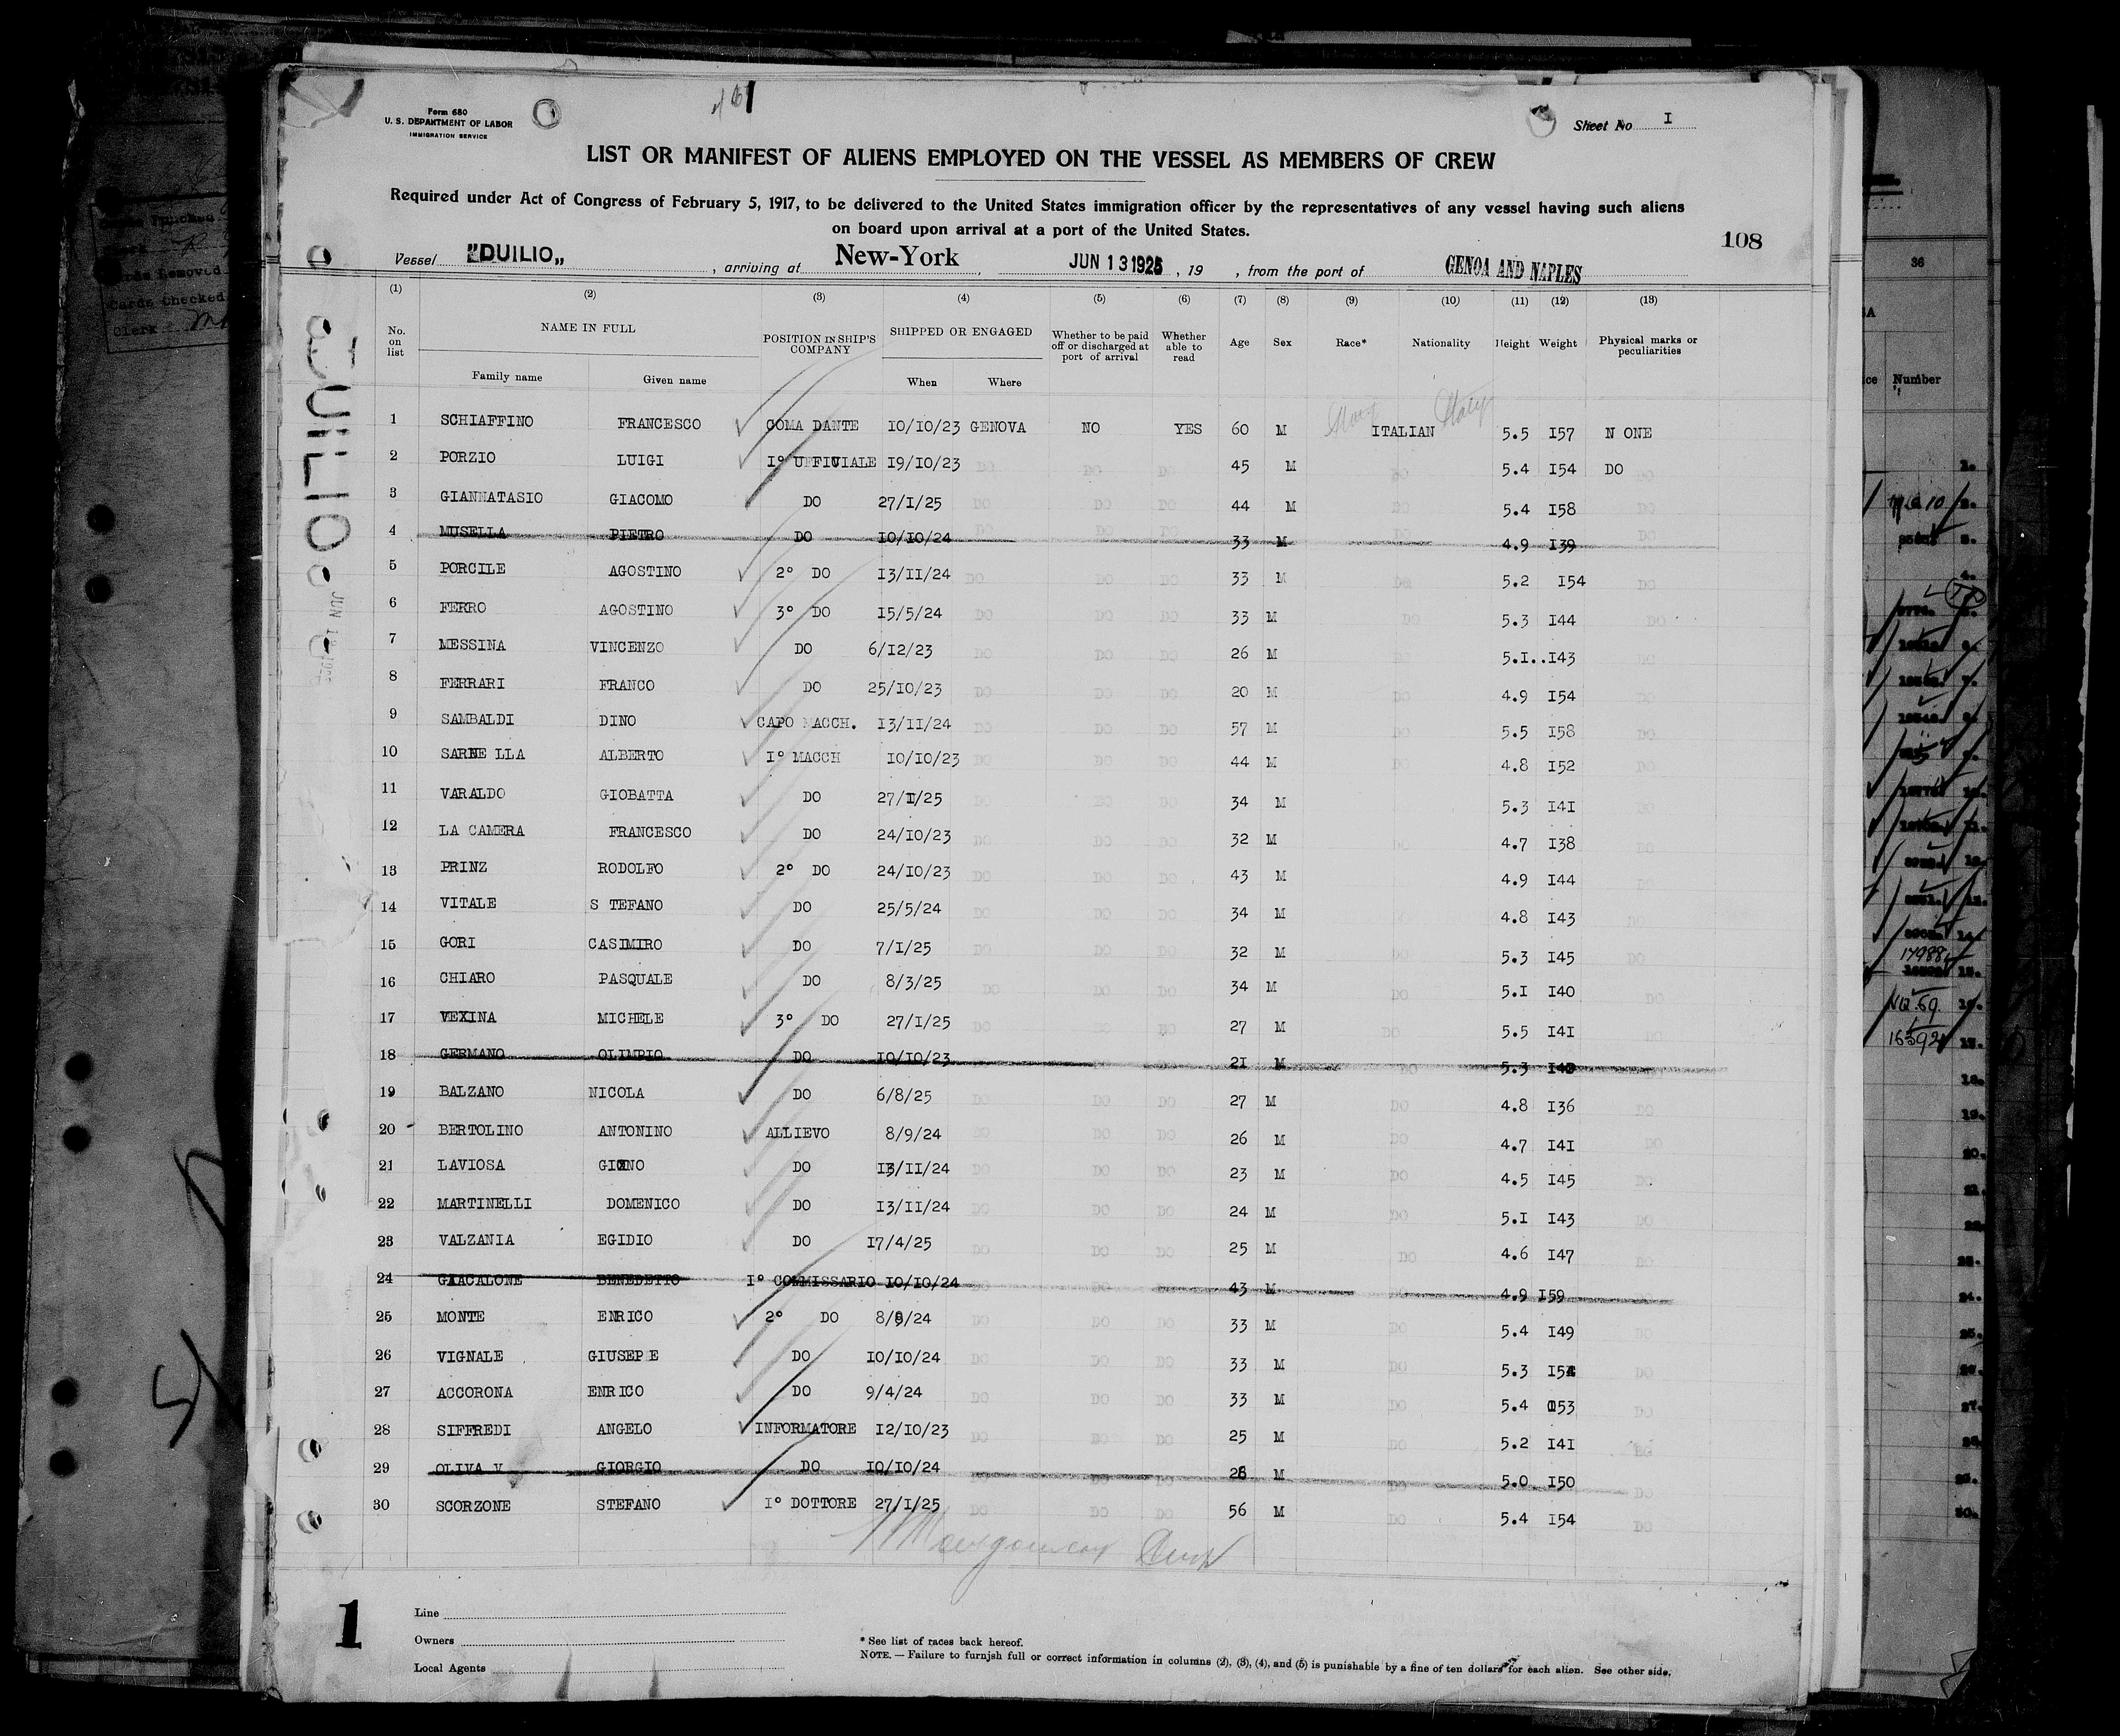 Form 680
U. S. DEPARTMENT OF LABOR
IMMIGRATION SERVICE
Sheet No I
LIST OR MANIFEST OF ALIENS EMPLOYED ON THE VESSEL AS MEMBERS OF CREW
Required under Act of Congress of February 5, 1917, to be delivered to the United States immigration officer by the representatives of any vessel having such aliens
on board upon arrival at a port of the United States.
108
Vessel "DUILIO„ , arriving at New-York , JUN 13 1925 , 19 , from the port of GENOA AND NAPLES
(1) (2) (3) (4) (5) (6) (7) (8) (9) (10) (11) (12) (13)
No. on list NAME IN FULL POSITION IN SHIP'S COMPANY SHIPPED OR ENGAGED Whether to be paid off or discharged at port of arrival Whether able to read Age Sex Race* Nationality Height Weight Physical marks or peculiarities
Family name Given name When Where
1 SCHIAFFINO FRANCESCO COMA DANTE 10/10/23 GENOVA NO YES 60 M ITALIAN Italy 5.5 I57 N ONE
2 PORZIO LUIGI I° UFFICIALE I9/10/23 DO DO DO 45 M DO 5.4 I54 DO
3 GIANNATASIO GIACOMO DO 27/I/25 DO DO DO 44 M DO 5.4 I58 DO
4 MUSELLA PIETRO DO IO/IO/24 DO DO DO 33 M DO 4.9 I39 DO
5 PORCILE AGOSTINO 2° DO I3/II/24 DO DO DO 33 M DO 5.2 I54 DO
6 FERRO AGOSTINO 3° DO I5/5/24 DO DO DO 33 M DO 5.3 I44 DO
7 MESSINA VINCENZO DO 6/I2/23 DO DO DO 26 M DO 5.I..I43 DO
8 FERRARI FRANCO DO 25/IO/23 DO DO DO 20 M DO 4.9 I54 DO
9 SAMBALDI DINO CAPO MACCH. I3/II/24 DO DO DO 57 M DO 5.5 I58 DO
10 SARNE LLA ALBERTO I° MACCH IO/IO/23 DO DO DO 44 M DO 4.8 I52 DO
11 VARALDO GIOBATTA DO 27/I/25 DO DO DO 34 M 5.3 I4I DO
12 LA CAMERA FRANCESCO DO 24/IO/23 DO DO DO 32 M DO 4.7 I38 DO
13 PRINZ RODOLFO 2° DO 24/IO/23 DO DO DO 43 M 4.9 I44 DO
14 VITALE S TEFANO DO 25/5/24 DO DO DO 34 M 4.8 I43 DO
15 GORI CASIMIRO DO 7/I/25 DO DO DO 32 M DO 5.3 I45 DO
16 CHIARO PASQUALE DO 8/3/25 DO DO DO 34 M DO 5.I I40 DO
17 VEXINA MICHELE 3° DO 27/I/25 DO DO DO 27 M DO 5.5 I4I DO
18 GERMANO OLIMPIO DO IO/IO/23 2I M DO 5.3 DO
19 BALZANO NICOLA DO 6/8/25 DO DO DO 27 M DO 4.8 I36 DO
20 BERTOLINO ANTONINO ALLIEVO 8/9/24 DO DO DO 26 M DO 4.7 I4I DO
21 LAVIOSA DO I3/II/24 DO DO DO 23 M DO 4.5 I45 DO
22 MARTINELLI DOMENICO DO I3/II/24 DO DO DO 24 M DO 5.I I43 DO
23 VALZANIA EGIDIO DO I7/4/25 DO DO DO 25 M DO 4.6 I47 DO
24 GIACALONE BENEDETTO I° COMMISSARIO IO/IO/24 43 M 4.9 I59
25 MONTE ENRICO 2° DO 8/9/24 DO DO DO 33 M DO 5.4 I49 DO
26 VIGNALE GIUSEP E DO IO/IO/24 DO DO DO 33 M DO 5.3 DO
27 ACCORONA ENRICO DO 9/4/24 DO DO DO 33 M DO 5.4 I53 DO
28 SIFFREDI ANGELO INFORMATORE I2/IO/23 DO DO DO 25 M DO 5.2 I4I DO
29 OLIVA V GIORGIO DO IO/IO/24 DO DO DO M DO 5.0 I50 DO
30 SCORZONE STEFANO I° DOTTORE 27/I/25 DO DO DO 56 M DO 5.4 I54 DO
1
Line
Owners
Local Agents
* See list of races back hereof.
NOTE. — Failure to furnish full or correct information in columns (2), (3), (4), and (5) is punishable by a fine of ten dollars for each alien. See other side.
DUILIO
36
Number
17988
16592